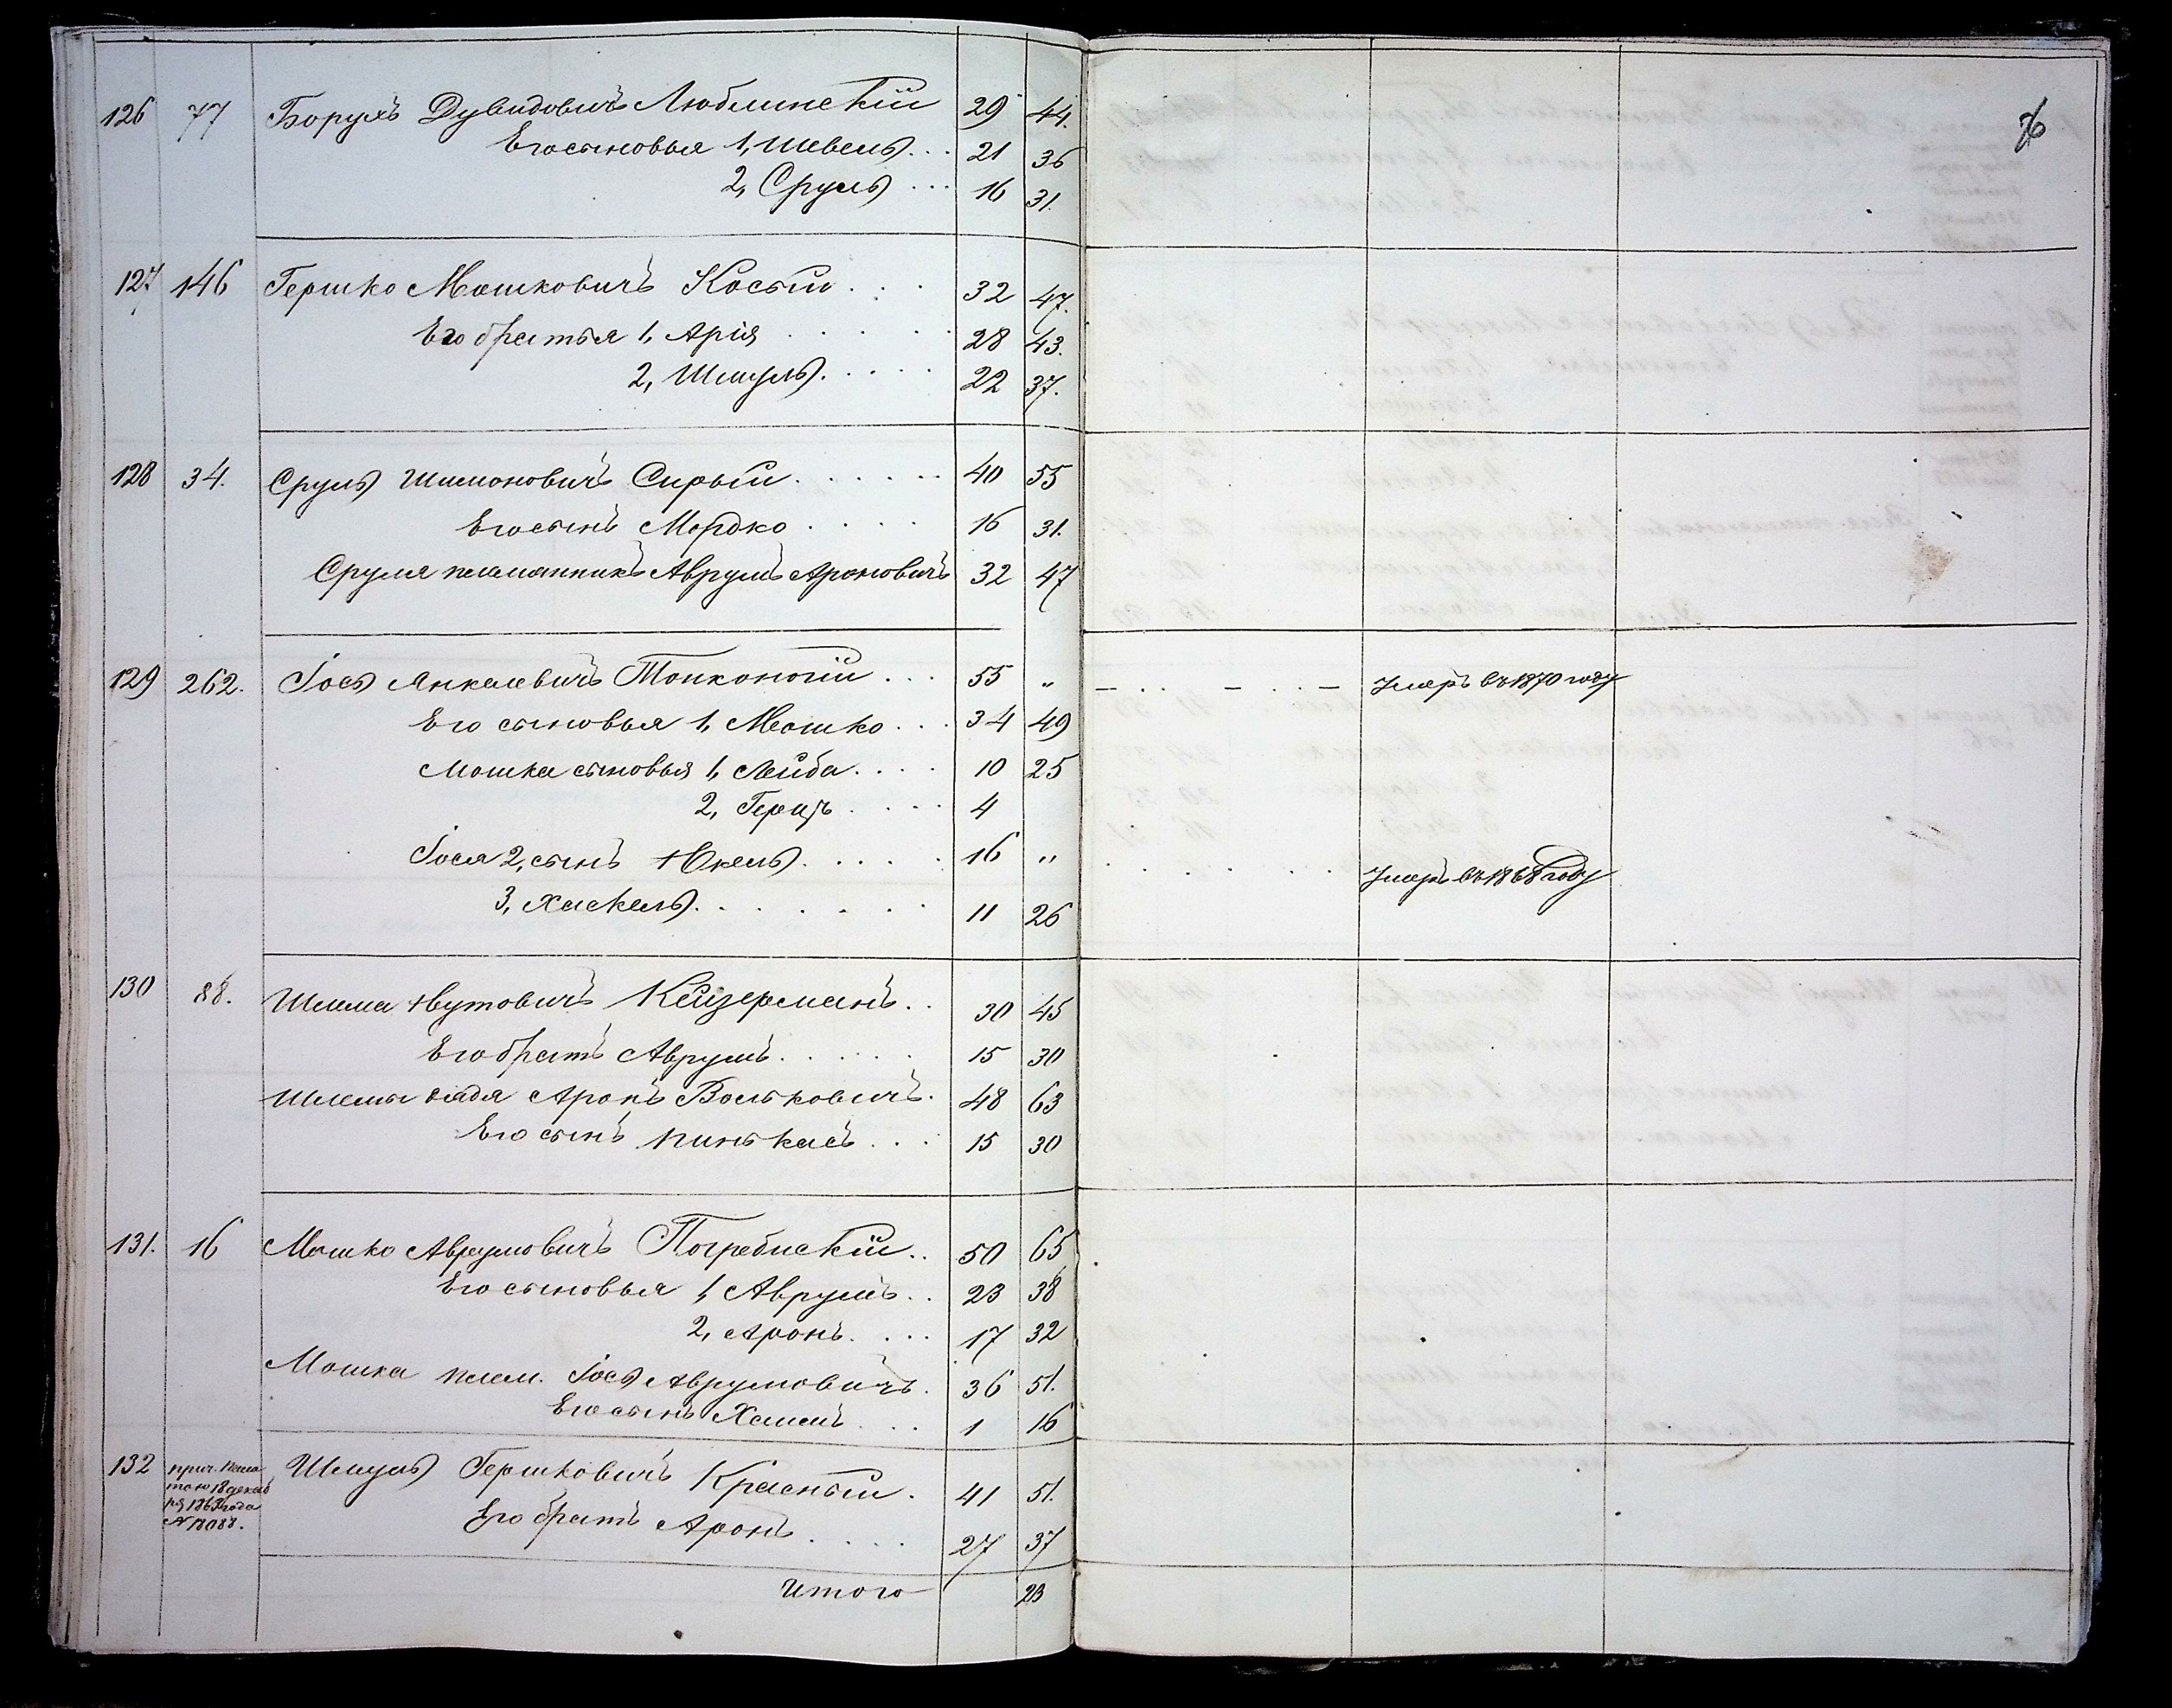 76
126 77 Борухъ Дувидовичъ Люблинскій 29 44.
Его сыновья 1, Шевель... 21 36
2, Сруль ... 16 31.
127 146 Гершко Мошковичъ Косый... 32 47.
Его братья 1, Арія ..... 28 43.
2, Шмуль..... 22 37.
128 34. Сруль Шимоновичъ Сирый...... 40 55
Его сынъ Мордко .... 16 31.
Сруля племянникъ Аврумъ Ароновичъ 32 47
129 262. Іось Янкелевичъ Тонконогій... 55 „ – .. – .. – Умеръ въ 1870 году
Его сыновья 1, Мошко... 34 49
Мошка сыновья 1, Лейба.... 10 25
2, Герцъ .... 4
Іося 2, сынъ Юкель..... 16 „ ..... Умеръ въ 1868 году
3, Хаскель....... 11 26
130 88. Шлема Нутовичъ Кейзерманъ.. 30 45
Его братъ Аврумъ...... 15 30
Шлемы дядя Аронъ Вольковичъ. 48 63
Его сынъ Пинькасъ... 15 30
131. 16 Мошко Аврумовичъ Погребискій.. 50 65
Его сыновья 1, Аврумъ.. 23 38
2, Аронъ.... 17 32
Мошка плем. Іось Аврумовичъ. 36 51.
Его сынъ Хаимъ... 1 16
132 прич. Пала
тою 18 декаб
ря 186 года
№ 18088.
Шмуль Гершковичъ Красный. 41 51.
Его братъ Аронъ .... 27 37
Итого 23